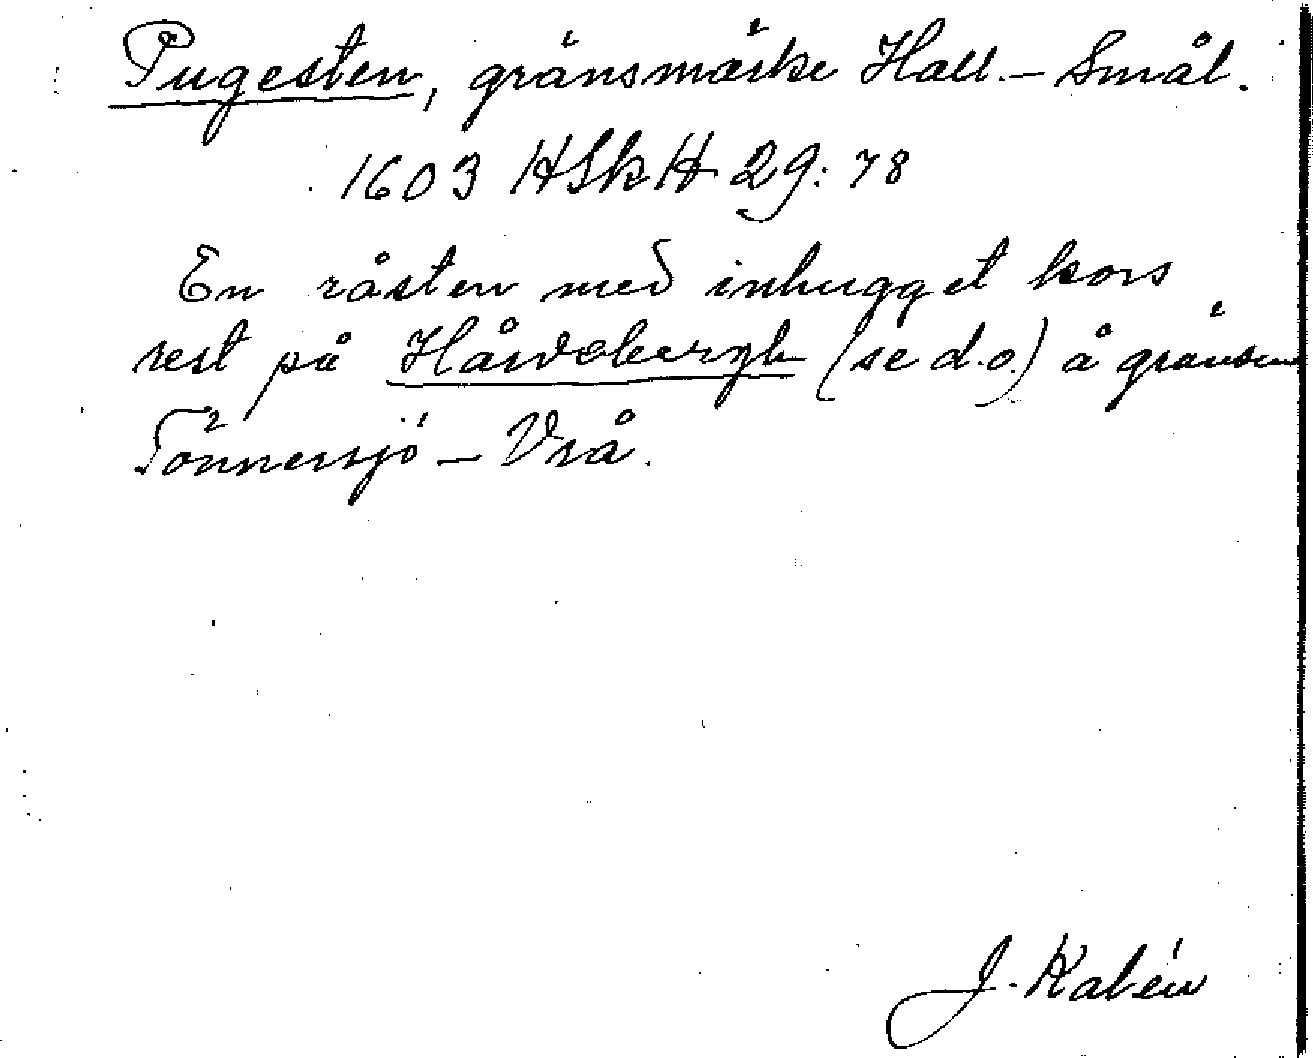 Pugesten, gränsmärke Hall. – Smål.
1603 HSkH 29:78
En råsten med inhugget kors
rest på Hårdebergh (se d.o.) å gränsen
Tönnersjö – Vrå.
J. Kalén